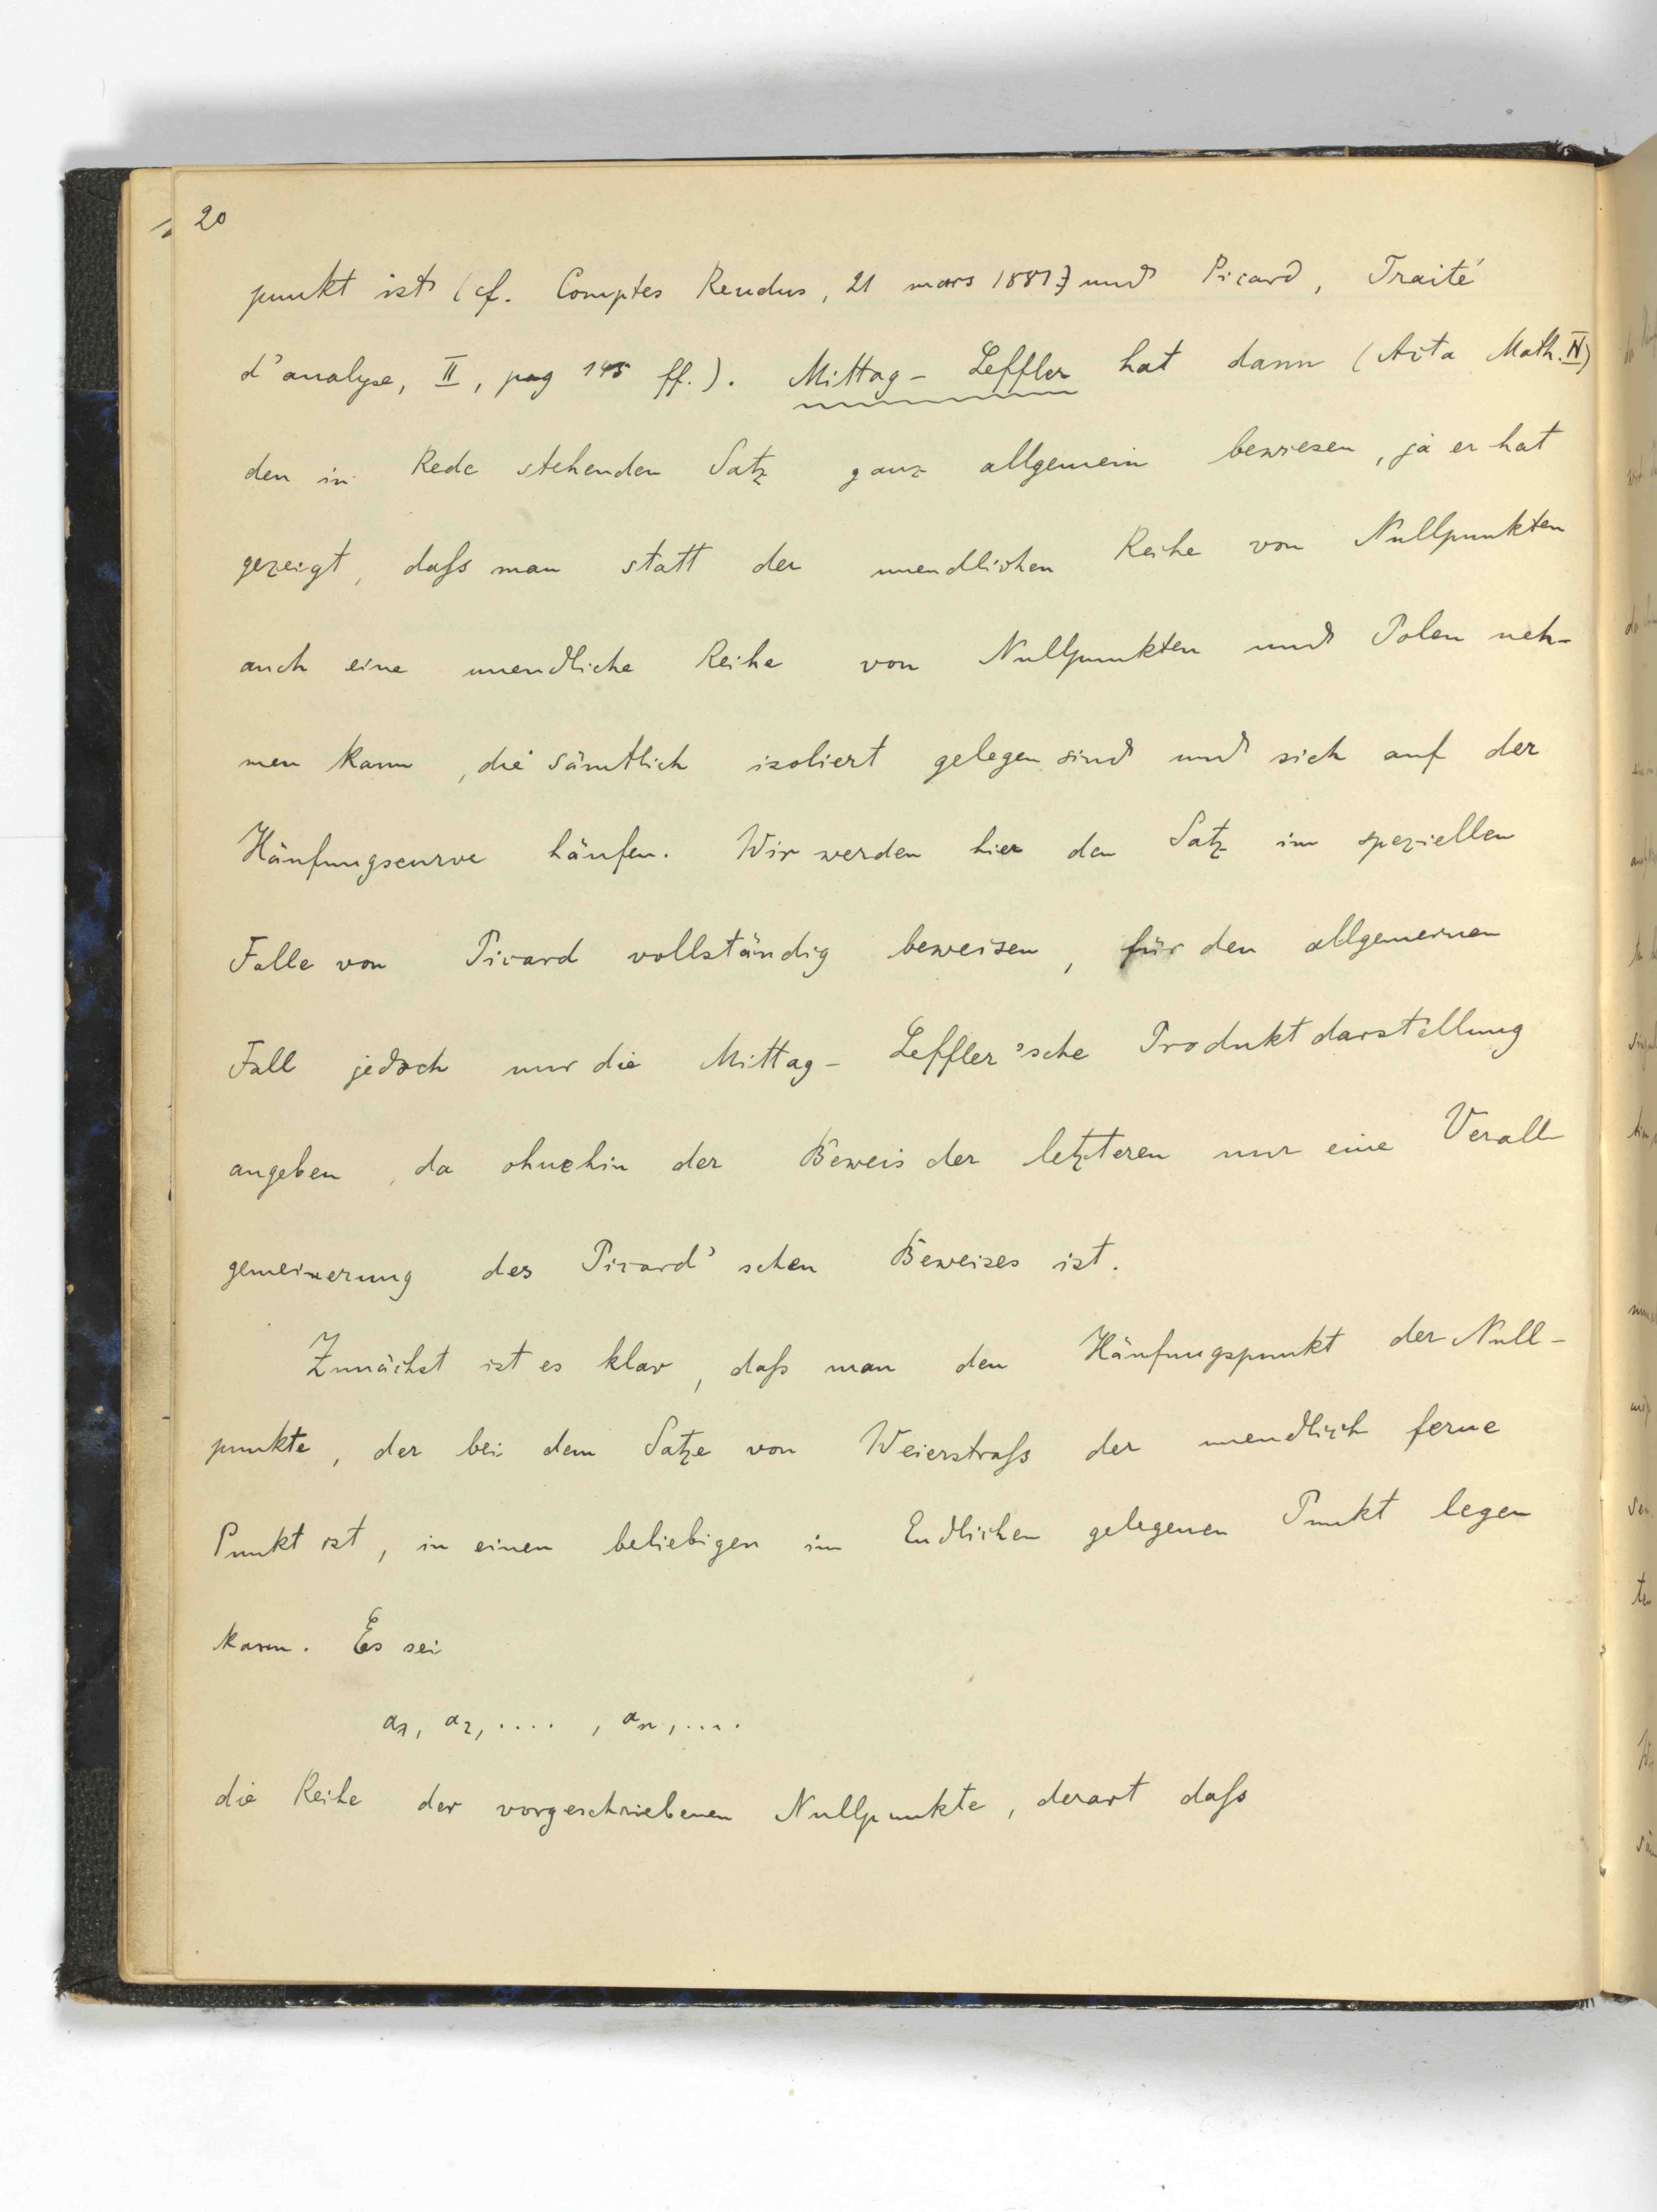 20
punkt ist (cf. Comptes Rendus, 21 mars 1881) und Picard, Traité
d'analyse, II, pag 145 ff.). Mittag-Leffler hat dann (Acta Math. IV)
den in Rede stehenden Satz ganz allgemein bewiesen, ja er hat
gezeigt, daſs man statt der unendlichen Reihe von Nullpunkten
auch eine unendliche Reihe von Nullpunkten und Polen neh-
men kann, die sämtlich isoliert gelegen sind und sich auf der
Häufungscurve häufen. Wir werden hier den Satz im speziellen
Falle von Picard vollständig beweisen, für den allgemeinen
Fall jedoch nur die Mittag-Leffler'sche Produktdarstellung
angeben, da ohnehin der Beweis der letzteren nur eine Verall-
gemeinerung des Picard'schen Beweises ist.
Zunächst ist es klar, daſs man den Häufungspunkt der Null-
punkte, der bei dem Satze von Weierstraſs der unendlich ferne
Punkt ist, in einen beliebigen im Endlichen gelegenen Punkt legen
kann. Es sei
a₁, a₂, .... , aₙ, ....
die Reihe der vorgeschriebenen Nullpunkte, derart daſs